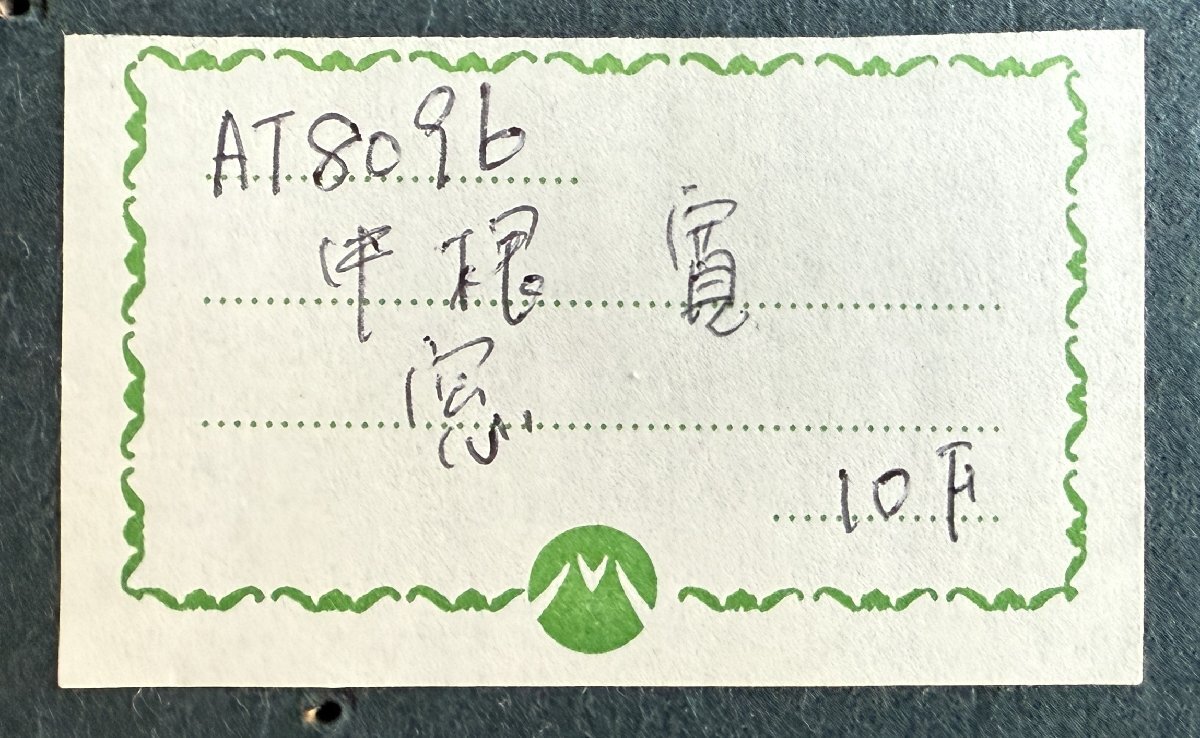 AT8096
中根 寛
窓
10F